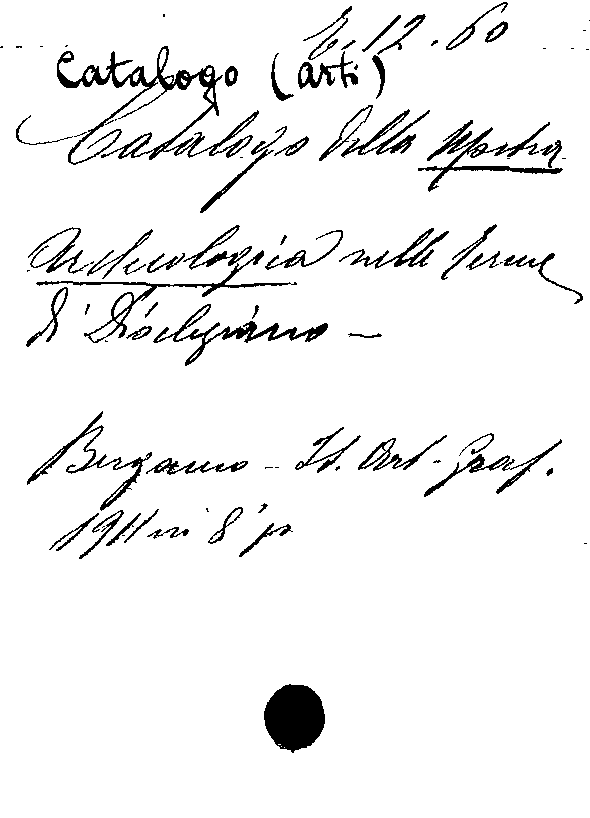 E. 12. 60
Catalogo (arti)
Catalogo della Mostra
Archeologica nelle Terme
di Diocleziano —
Bergamo - Ist. Art. Graf.
1911 in 8° p